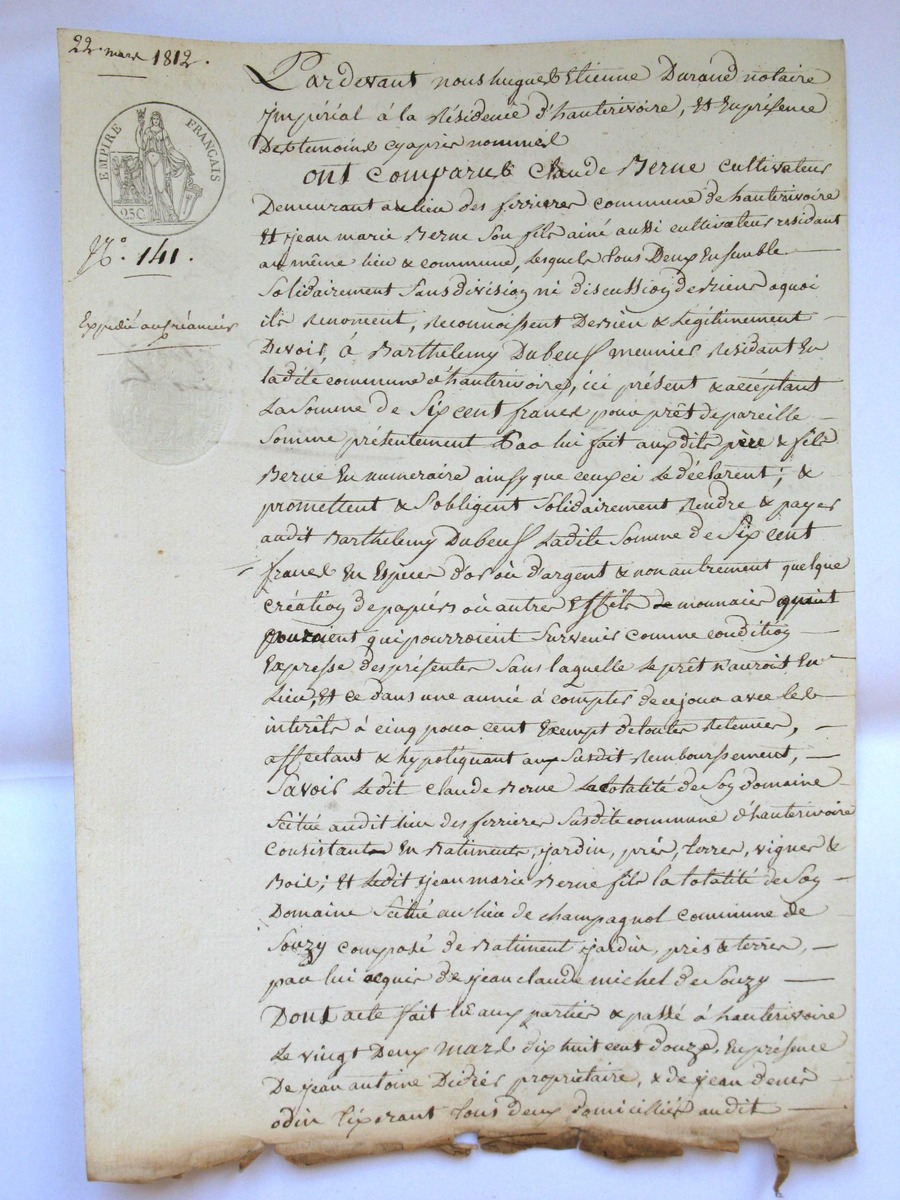 22 mars 1812.
EMPIRE FRANÇAIS
25 C
N.º 141.
Expédié au créancier
Pardevant nous hugue Etienne Durand notaire
impérial à la Résidence d'hauterivoire, Et En présence
Des temoins cyaprès nommés
ont comparus Claude Berne cultivateur
Demeurant au lieu des ferrieres commune de hauterivoire
Et jean marie Berne Son fils ainé aussi cultivateur residant
au même lieu & commune, lesquels tous Deux Ensemble
Solidairement Sans division ni discussion de biens a quoi
ils Renoncent, Reconnoissent Devoir & Légitimement
Devoir, à Barthelemy Dubeuf meunier Residant En
ladite commune d'hauterivoire, ici présent & acceptant
La Somme de Six cent francs pour prêt de pareille
Somme présentement par lui fait auxdits père & fils
Berne En numeraire ainsy que ceux ci Le déclarent; &
promettent & S'obligent Solidairement Rendre & payer
audit Barthelemy Dubeuf Ladite Somme de Six cent
francs En Especes d'or ou d'argent & non autrement quelque
création de papiers ou autres Effets de monnaies
qui pourroient Survenir comme condition
Expresse des présentes Sans laquelle Le prêt n'auroit Eu
Lieu, Et ce dans une année à compter de ce jour avec les
intérêts à cinq pour cent Exempt de toutes Retenues,
affectant & hypotéquant au Susdit Remboursement,
Savoir Ledit Claude Berne La totalité de Son domaine
Scitué audit lieu des ferrieres Susdite commune d'hauterivoire
Consistant En Batiments, jardin, prés, terres, vignes &
Bois; Et Ledit jean marie Berne fils la totalité de Son
Domaine Scitué au lieu de champagnol commune de
Souzy composé de Batiment jardin, prés & terres,
par lui acquis de jean claude michel de Souzy
Dont acte fait lû aux parties & passé à hauterivoire
Le vingt Deux mars dix huit cent douze, En présence
De jean antoine Didier propriétaire, & de jean denis
odin tixerant tous deux domiciliés audit